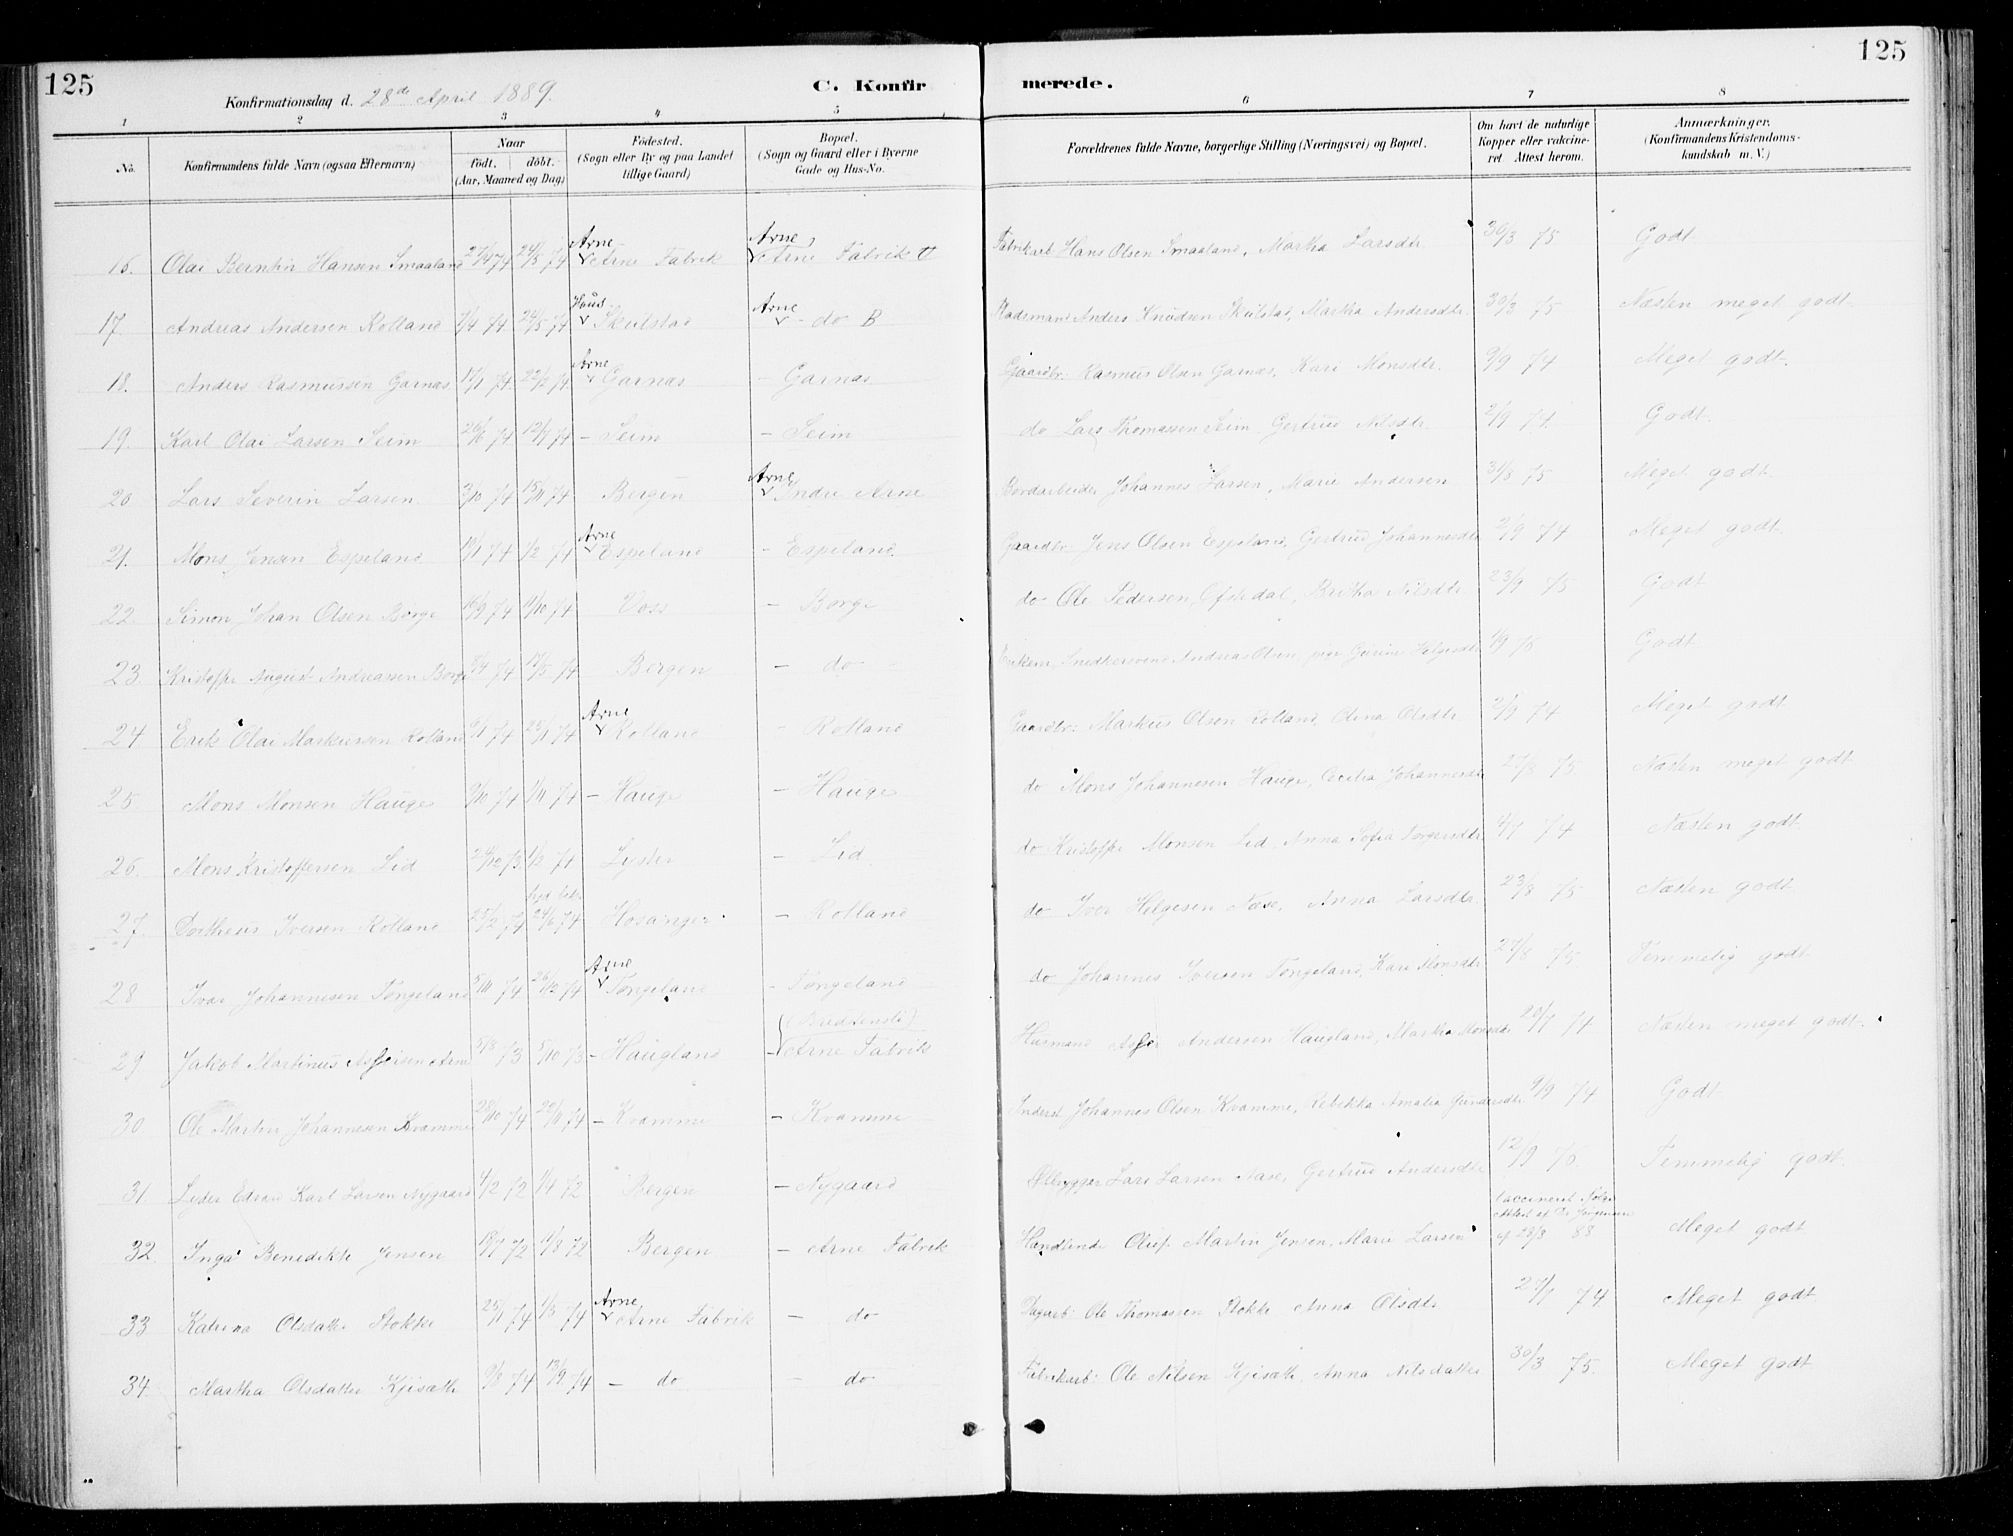 125
125
C. Konfir merede.
Konfirmationsdag d. 28de April 1889.
1 2 3 4 5 6 7 8
No.
Konfirmandens fulde Navn (ogsaa Efternavn)
Naar
födt. döbt.
(Aar, Maaned og Dag)
Födested.
(Sogn eller By og paa Landet
tillige Gaard)
Bopæl.
(Sogn og Gaard eller i Byerne
Gade og Hus-No.
Forældrenes fulde Navne, borgerlige Stilling (Næringsvei) og Bopæl.
Om havt de naturlige
Kopper eller vakcine-
ret Attest herom.
Anmærkninger.
(Konfirmandens Kristendoms-
kundskab m. V.)
16. Olai Berntin Hansen Smaaland 27/4 74 24/5 74 Arne Arne Fabrik Arne Arne Fabrik Fabrikarb Hans Olsen Smaaland, Martha Larsdtr 30/3 75 Godt
17. Andreas Andersen Rolland 7/4 74 24/5 74 Skulstad Arne do B Pladsmand Anders Knudsen Skulstad, Martha Andersdtr. 30/3 75 Næsten meget godt
18. Anders Rasmussen Garnæs 17/1 74 22/2 74 Arne Garnæs - Garnæs Gaardbr. Rasmus Olsen Garnæs, Kari Monsdtr. 2/9 74 Meget godt
19. Karl Olai Larsen Seim 26/6 74 12/7 74 - Seim - Seim do Lars Thomassen Seim Gertrud Nilsdtr. 2/9 74 Godt.
20 Lars Severin Larsen. 3/10 74 15/11 74 Bergen Arne Indre Arne Bordarbeider Johannes Larsen, Marie Andersen 31/8 75 Meget godt
21. Mons Jensen Espeland 19/1 74 1/2 74 Arne Espeland - Espeland Gaardbr Jens Olsen Espeland, Gertrud Johannesdtr 2/9 74 Meget godt
22. Simon Johan Olsen Borge 16/9 74 11/10 74 Voss - Borge do Ole Pedersen Ofstedal, Britha Nilsdtr 23/9 75 Godt
23. Kristoffer August Andreassen Borge 5/4 74 17/5 74 Bergen - do Enkem. Snedkersvend Andreas Olsen, pige Gurine Helgesdtr 1/9 76 Godt
24 Erik Olai Markussen Rolland 6/1 74 25/1 74 Arne Rolland - Rolland Gaardbr. Markus Olsen Rolland, Olina Olsdtr 2/9 74 Meget godt
25. Mons Monsen Hauge 9/10 74 1/11 74 - Hauge - Hauge do Mons Johannesen Hauge, Cecilia Johannesdtr 27/8 75 Næsten meget godt
26. Mons Kristoffersen Lid 24/12 73. 1/2 74 Lyster - Lid do Kristoffer Monsen Lid, Anna Sofia Torgersdtr 4/7 74 Næsten godt
27. Iversen Rolland 25/2 74 24/6 74 Hosanger - Rolland do Iver Helgesen Næse, Anna Larsdtr. 23/8 75 Næsten godt
28 Ivar Johannesen Tongeland 5/11 74 26/12 74 Arne Tongeland - Tongeland do Johannes Iversen Tongeland, Kari Monsdtr 27/8 75 Temmelig godt
29 Jakob Martinus Arne 5/8 73 5/10 73 - Haugland - Arne Fabrik Husmand Andersen Haugland, Martha Monsdtr 20/7 74 Næsten meget godt
30 Ole Martin Johannesen Kvamme 28/10 74 29/11 74 - Kvamme - Kvamme Inderst Johannes Olsen Kvamme, Rebekka Amalia Gundersdtr 9/9 74 Godt
31. Lyder Edvard Karl Larsen Nygaard 4/2 72 1/4 72 Bergen - Nygaard Ølbrygger Lars Larsen Næse, Gertrud Andersdtr 12/9 76 Temmelig godt.
32. Inga Benedikte Jensen 18/7 72 11/8 72 Bergen - Arne Fabrik Handlende Oluf Martin Jensen, Marie Larsen Vaccineret ifølge
Attest af Dr Jørgensen
af 23/3 88 Meget godt
33 Katrina Olsdatter Stokke 25/1 74 1/3 74 Arne Arne Fabrik - do Dagarb: Ole Thomassen Stokke Anna Olsdtr 27/7 74 Meget godt
34. Martha Olsdatter Kjisæth 9/8 74 13/9 74 - do - do Fabrikarb: Ole Nilsen Kjisæth, Anna Nilsdatter 30/3 75. Meget godt